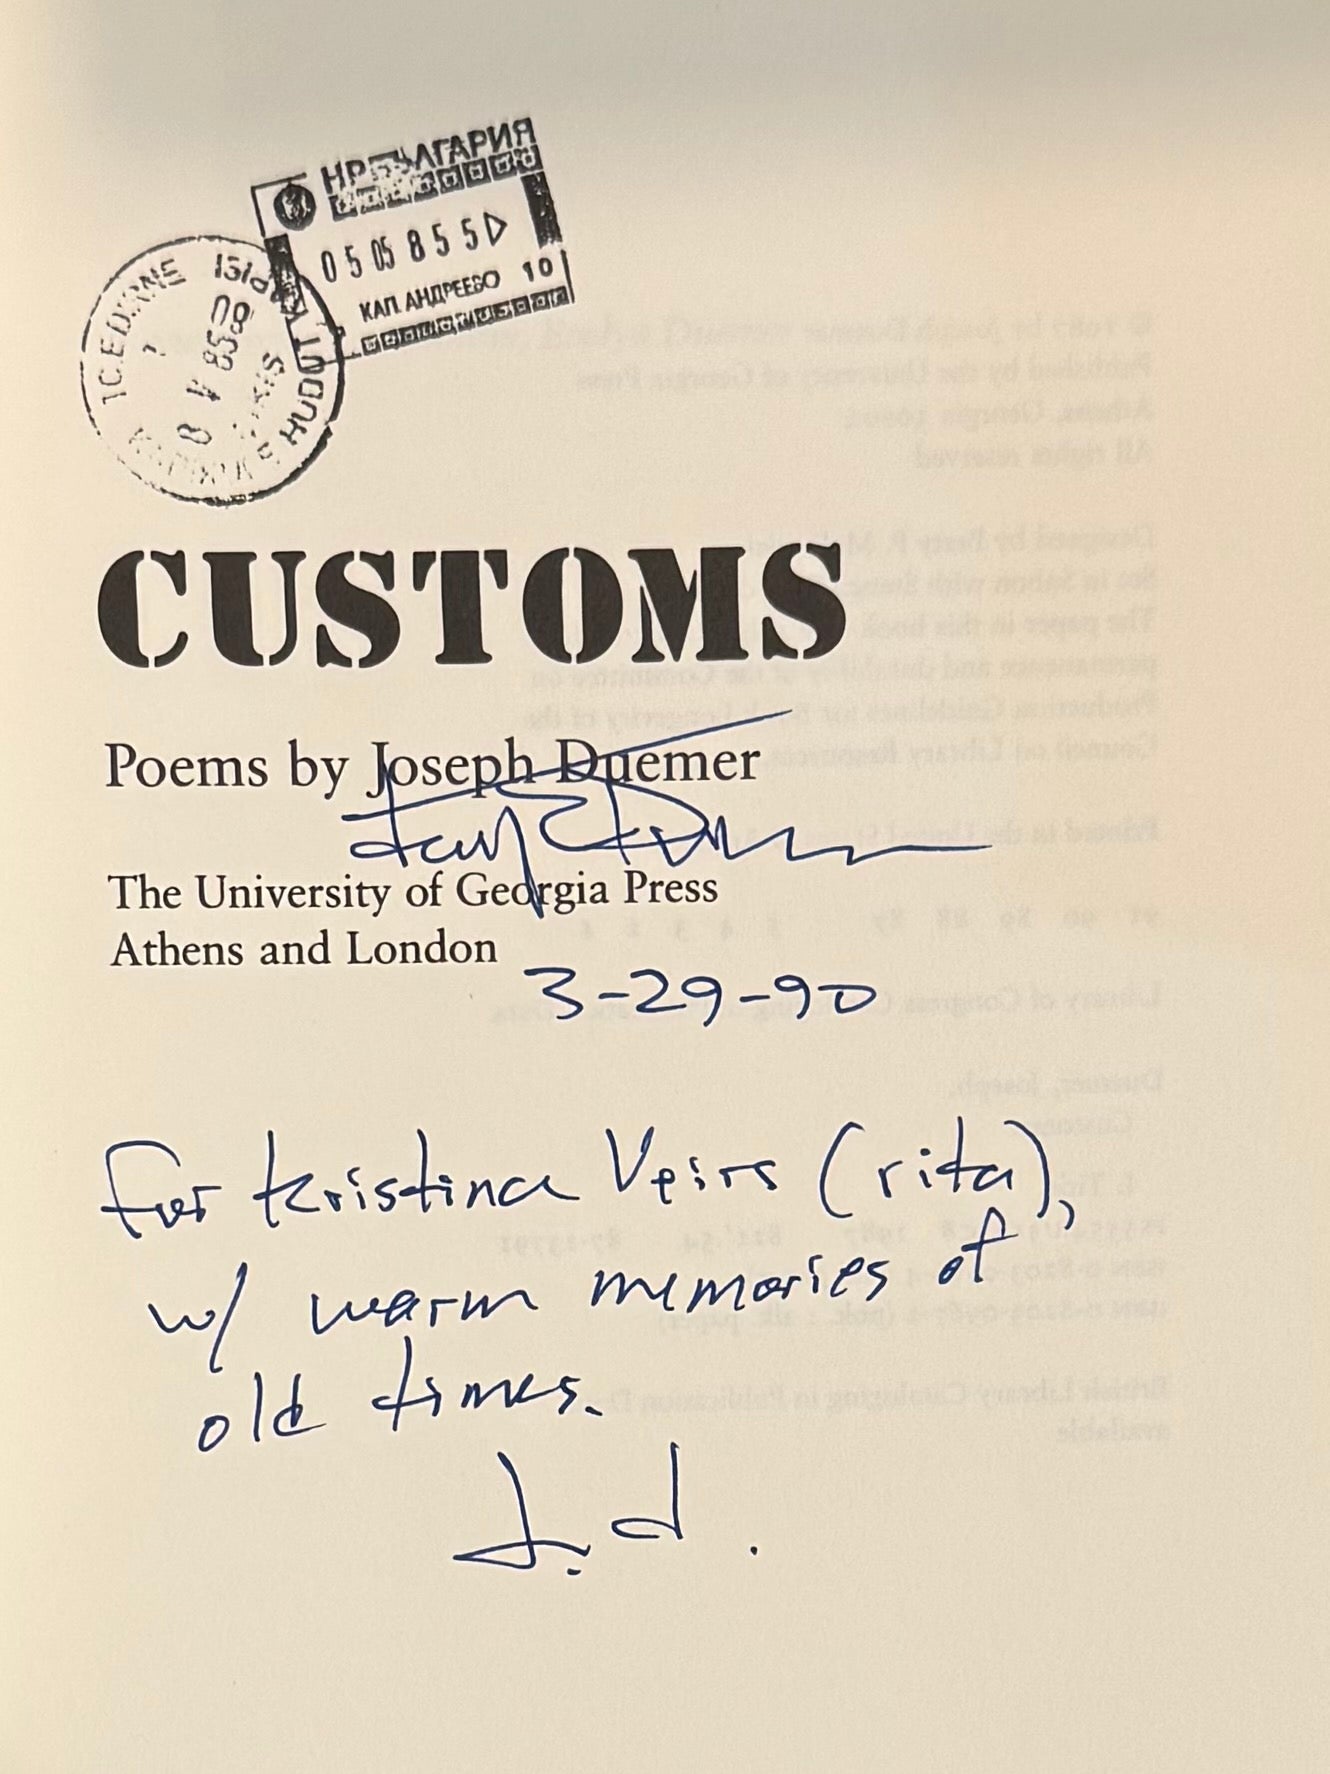 НР БЪЛГАРИЯ
05 05 85 5
КАП. АНДРЕЕВО 10
T.C. EDİRNE
CUSTOMS
Poems by Joseph Duemer
The University of Georgia Press
Athens and London
3-29-90
For Kristina Veirs (rita),
w/ warm memories of
old times.
J.d.